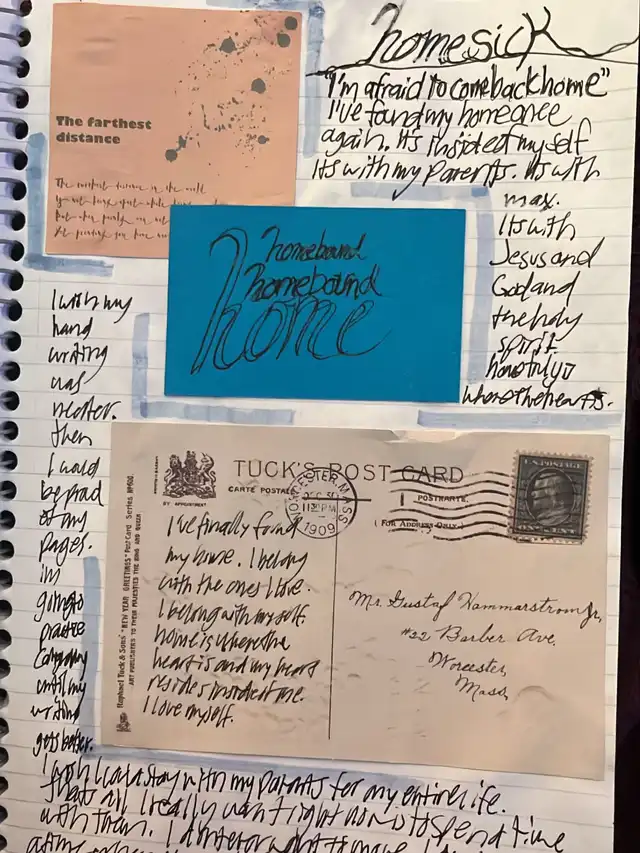 homesick
"I'm afraid to come back home"
I've found my home once
again. It's inside of myself
its with my parents. Its with
max.
Its with
Jesus and
God and
the holy
spirit.
home truly is
where the heart is.
The farthest
distance
The farthest distance in the world
homebound
homebound
home
I wish my
hand
writing
was
neater.
then
I would
be proud
of my
pages.
im
going to
practice
Calligraphy
until my
writing
gets better.
TUCK'S POST CARD
CARTE POSTALE
POSTKARTE.
(FOR ADDRESS ONLY.)
BY APPOINTMENT
WORCESTER, MASS
1909
U.S. POSTAGE
Raphael Tuck & Sons' "NEW YEAR GREETINGS" PostCard Series
ART PUBLISHERS TO THEIR MAJESTIES THE KING AND QUEEN
I've finally found
my home. I belong
with the ones I love.
I belong with my self.
home is where the
heart is and my heart
resides inside of me.
I love myself.
Mr. Gustaf Hammarstrom Jr,
#22 Barber Ave,
Worcester,
Mass,
I wish I could stay with my parents for my entire life.
thats all I really want right now is to spend time
with them. I